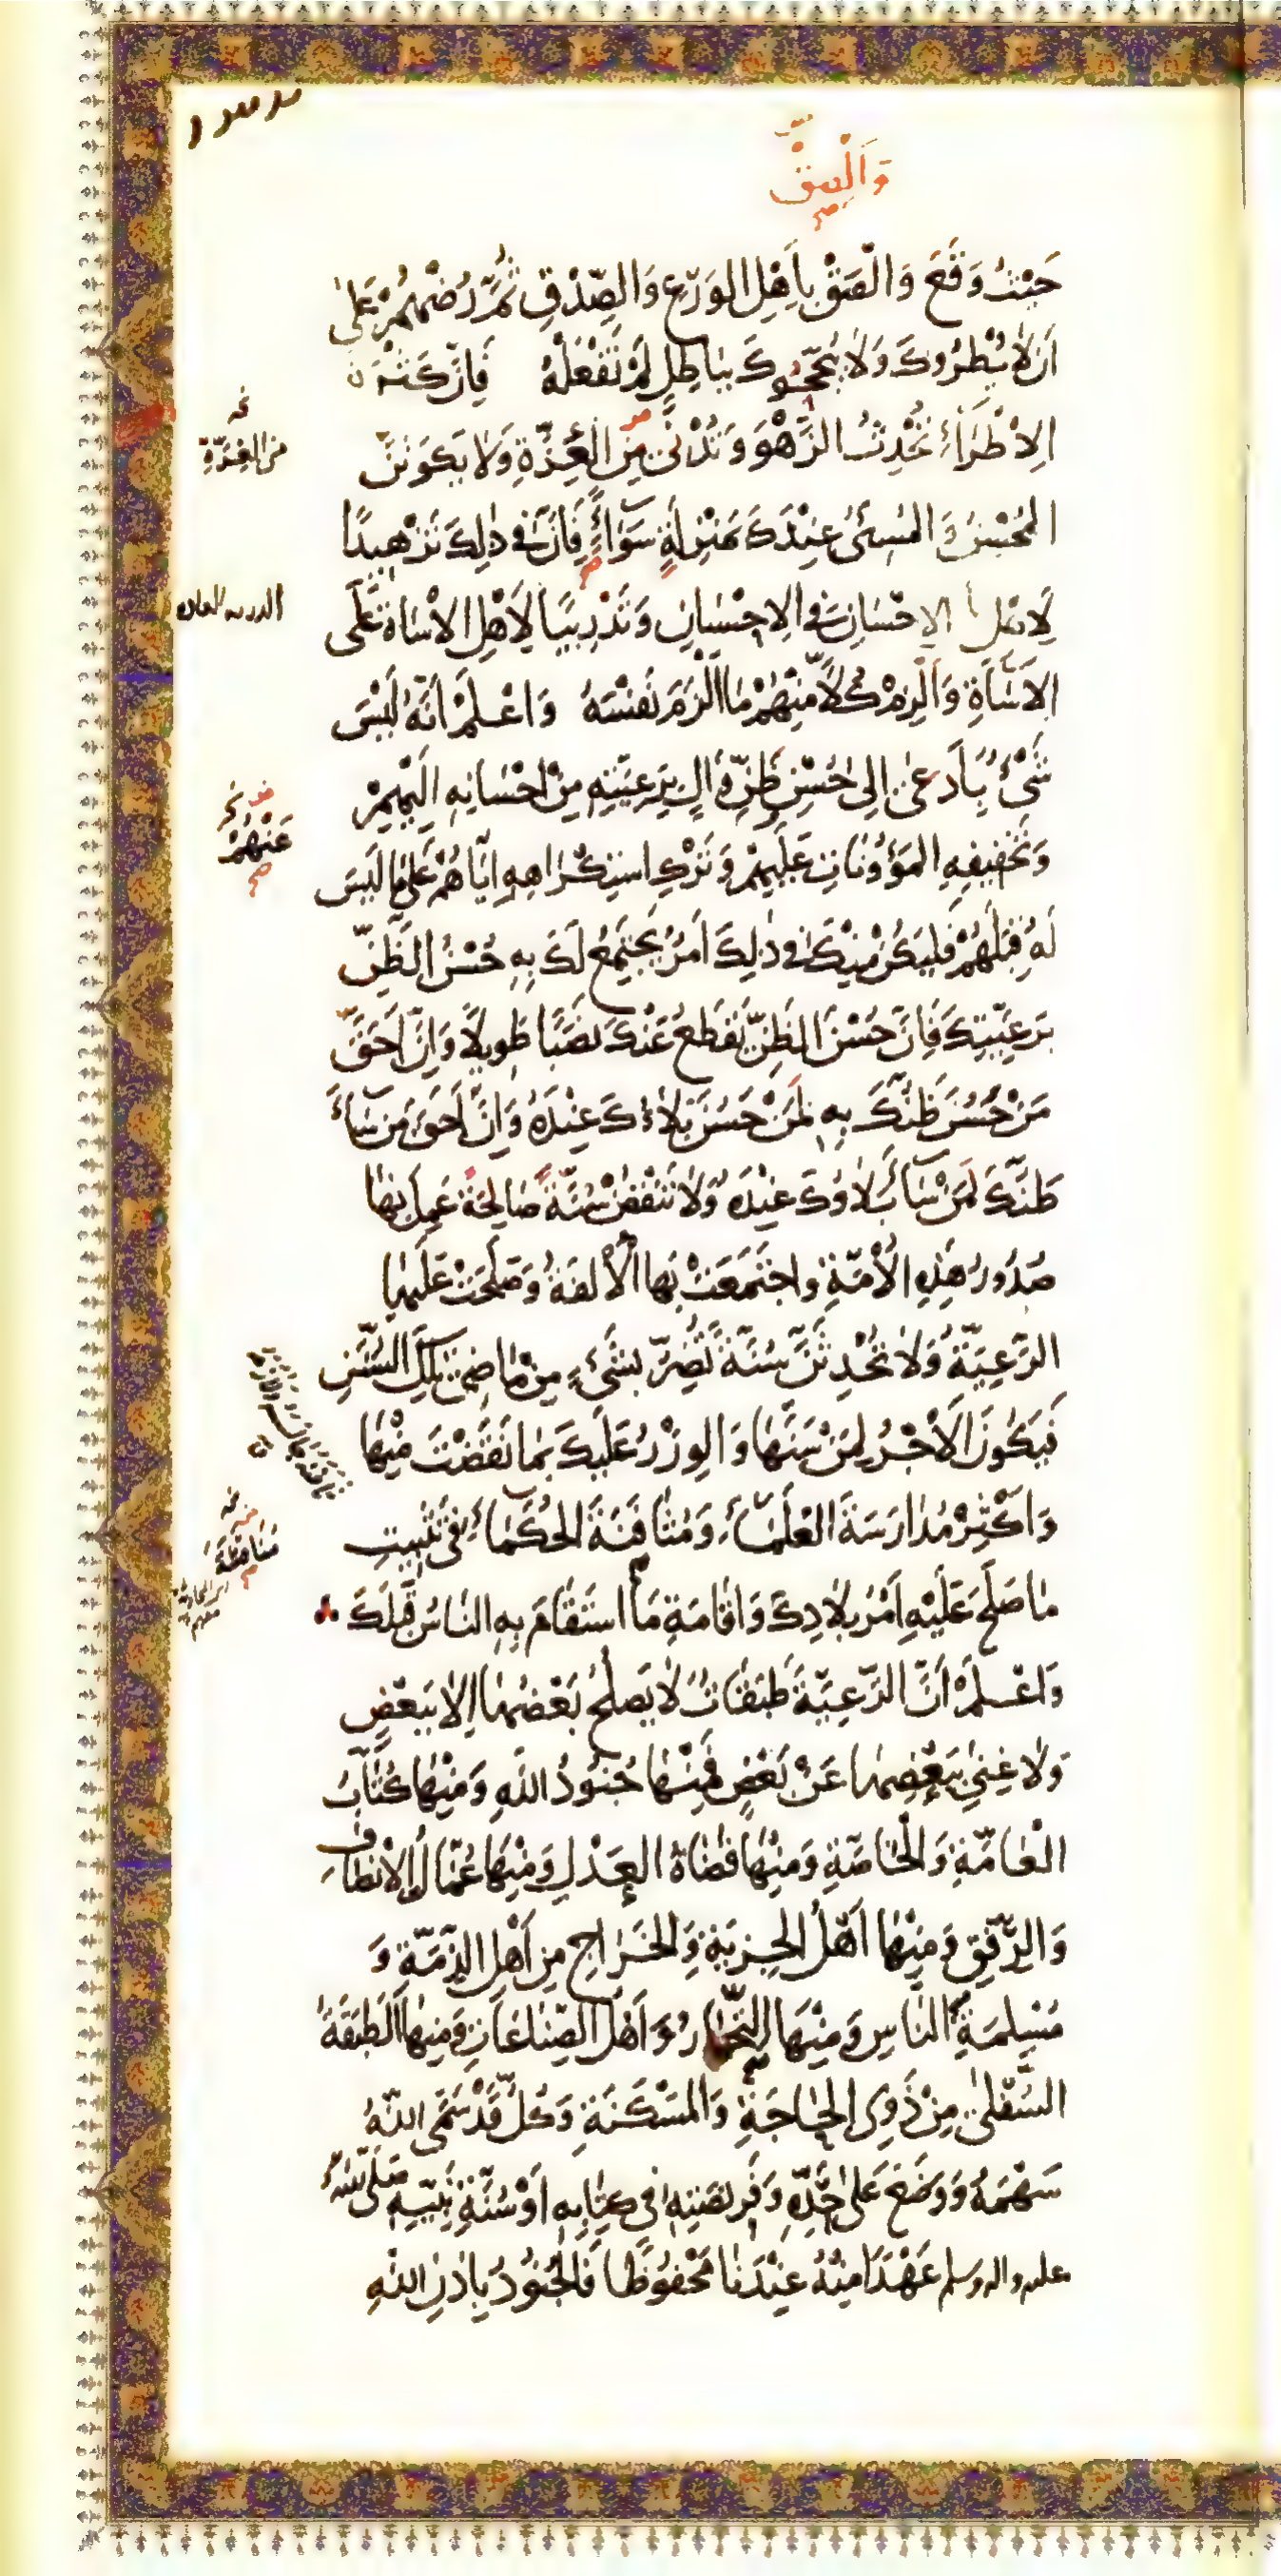 وَالْصَقْ
حَيْثُ وَقَعَ وَالْصَقْ بِاَهْلِ الوَرَعِ وَالصِّدْقِ ثُمَّ رُضْهُمْ عَلىٰ
اَنْ لٰا يُطْرُوكَ وَلٰا يُبَجِّحُوكَ بِبٰاطِلٍ لَمْ تَفْعَلْهُ فَاِنَّ كَثْرَةَ
الاِطْرٰاءِ تُحْدِثُ الزَّهْوَ وَتُدْنى مِنَ الْعِزَّةِ وَلٰا يَكُونَنَّ
المُحْسِنُ وَ المُسِىُٔ عِنْدَكَ بِمَنْزِلَةٍ سَوٰاءٍ فَاِنَّ فى ذٰلِكَ تَزْهِيدًا
لِاَهْلِ الاِحْسٰانِ فى الاِحْسٰانِ وَتَدْرِيبًا لِاَهْلِ الاْسٰاةِ عَلَى
الاَسٰاَةِ وَاَلْزِمْ كُلاًّ مِنْهُمْ مٰا اَلْزَمَ نَفْسَهُ وَاعْلَمْ اَنَّهُ لَيْسَ
شَىْءٌ بِاَدْعىٰ اِلىٰ حُسْنِ ظَنِّ وٰالٍ بِرَعِيَّتِهِ مِنْ اِحْسٰانِهِ اِلَيْهِمْ
وَتَخْفِيفِهِ المَؤُونٰاتِ عَلَيْهِمْ وَتَرْكِ اسْتِكْرٰاهِهِ اِيّٰاهُمْ عَلىٰ مٰا لَيْسَ
لَهُ قِبَلَهُمْ فَلْيَكُنْ مِنْكَ فى ذٰلِكَ اَمْرٌ يَجْتَمِعُ لَكَ بِهِ حُسْنُ الظَّنِّ
بِرَعِيَّتِكَ فَاِنَّ حُسْنَ الظَّنِّ يَقْطَعُ عَنْكَ نَصَبًا طَوِيلاً وَاِنَّ اَحَقَّ
مَنْ حَسُنَ ظَنُّكَ بِهِ لَمَنْ حَسُنَ بَلٰاءُكَ عِنْدَهُ وَاِنَّ اَحَقَّ مَنْ سٰاءَ
ظَنُّكَ لَمَنْ سٰاءَ بَلٰاوُكَ عِنْدَهُ وَلٰا تَنْقُضْ سُنَّةً صٰالِحَةً عَمِلَ بِهٰا
صُدُورُ هٰذِهِ الاُمَّةِ وَاجْتَمَعَتْ بِهَا الْاُلْفَةُ وَصَلَحَتْ عَلَيْهٰا
الرَّعِيَّةُ وَلٰا تُحْدِثَنَّ سُنَّةً تَضُرُّ بِشَىْءٍ مِنْ مٰاضِى تِلْكَ السُّنَنِ
فَيَكُونَ الاَجْرُ لِمَنْ سَنَّهٰا وَالوِزْرُ عَلَيْكَ بِمٰا نَقَضْتَ مِنْهٰا
وَاَكْثِرْ مُدٰارَسَةَ العُلَمٰاءِ وَمُثٰافَنَةَ الحُكَمٰاءِ فى تَثْبِيتِ
مٰا صَلَحَ عَلَيْهِ اَمْرُ بِلٰادِكَ وَاِقٰامَةِ مَا اسْتَقٰامَ بِهِ النّٰاسُ قَبْلَكَ
وَاعْلَمْ اَنَّ الرَّعِيَّةَ طَبَقٰاتٌ لٰا يَصْلُحُ بَعْضُهٰا اِلّٰا بِبَعْضٍ
وَلٰا غِنىٰ بِبَعْضِهٰا عَنْ بَعْضٍ فَمِنْهٰا جُنُودُ اللّٰهِ وَمِنْهٰا كُتّٰابُ
الْعٰامَّةِ وَالْخٰاصَّةِ وَمِنْهٰا قُضٰاةُ العَدْلِ وَمِنْهٰا عُمّٰالُ الاِنْصٰافِ
وَالرِّفْقِ وَمِنْهٰا اَهْلُ الْجِزْيَةِ وَالْخَرٰاجِ مِنْ اَهْلِ الذِّمَّةِ وَ
مُسْلِمَةِ النّٰاسِ وَمِنْهَا التُّجّٰارُ وَ اَهْلُ الصِّنٰاعٰاتِ وَمِنْهَا الطَّبَقَةُ
السُّفْلىٰ مِنْ ذَوِى الحٰاجَةِ وَالْمَسْكَنَةِ وَكُلٌّ قَدْ سَمَّى اللّٰهُ
سَهْمَهُ وَوَضَعَ عَلىٰ حَدِّهِ وَفَرِيضَتِهِ فى كِتٰابِهِ اَوْ سُنَّةِ نَبِيِّهِ صَلَّى اللّٰهُ
عليه واله وسلم عَهْدًا مِنْهُ عِنْدَنٰا مَحْفُوظًا فَالْجُنُودُ بِاِذْنِ اللّٰهِ
من العِزَّةِ
عَنْهُمْ
مُنٰاقَثَةَ